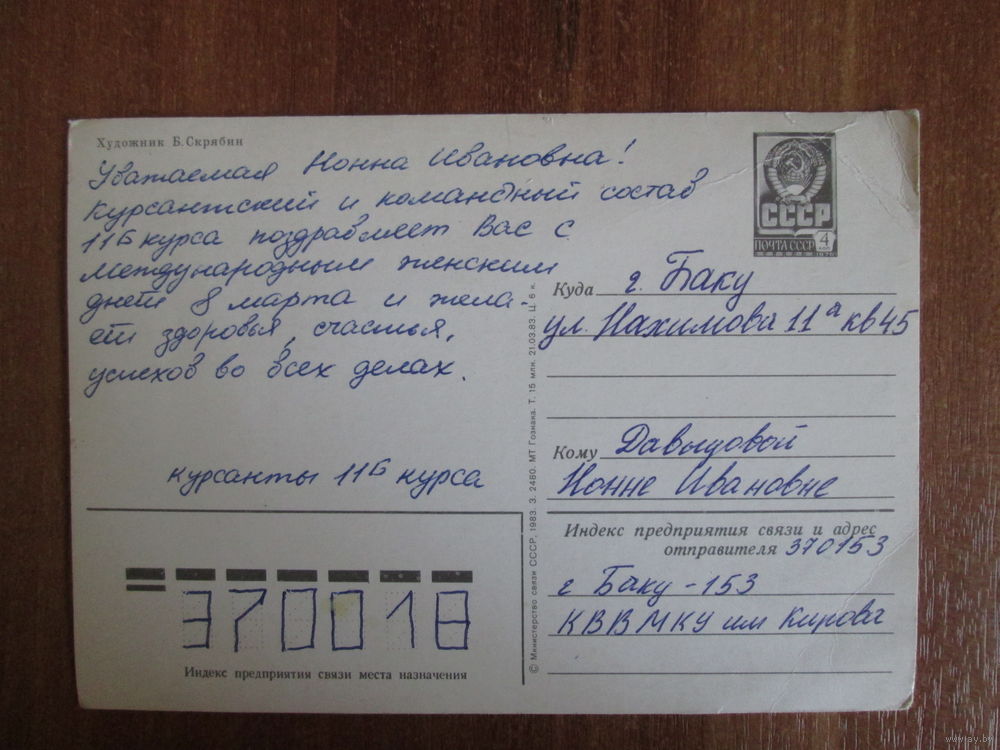 Художник Б. Скрябин
Уважаемая Нонна Ивановна!
Курсантский и командный состав
11Б курса поздравляет Вас с
международным женским
днём 8 марта и жела-
ет здоровья, счастья,
успехов во всех делах.
курсанты 11Б курса
СССР
ПОЧТА СССР 4
КОП
Куда г. Баку
ул. Нахимова 11а кв 45
Кому Давыдовой
Нонне Ивановне
Индекс предприятия связи и адрес
отправителя 370153
г Баку - 153
КВВМКУ им Кирова
370018
Индекс предприятия связи места назначения
© Министерство связи СССР, 1983. З. 2480. МТ Гознака. Т. 15 млн. 21.03.83. Ц. 6 к.
www.ay.by